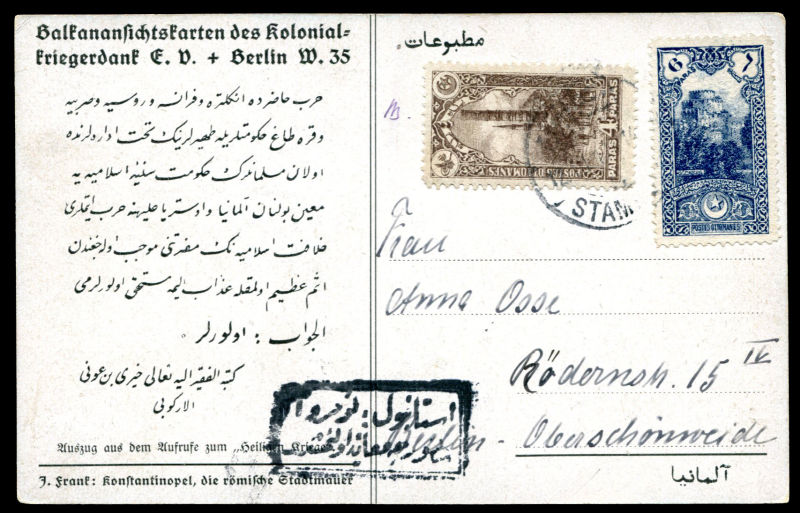 Balkanansichtskarten des Kolonial-
kriegerdank E. V. + Berlin W. 35
حرب حاضرده انكلتره و فرانسه و روسيه و صربيه
و قره طاغ حكومتلريله ظهيرلرينك تحت اداره لرنده
اولان مسلمانلرك حكومت سنيۀ اسلاميه يه
معين بولنان آلمانيا و اوستريا عليهنه حرب ايتملرى
خلافت اسلاميه نك مضرتنى موجب اوله جغندن
اثم عظيم اولمقله عذاب اليمه مستحق اولورلرمى
الجواب : اولورلر .
كتبه الفقير اليه تعالى خيرى بن عونى
الاركوبى
Auszug aus dem Aufrufe zum „Heiligen Kriege“
J. Frank: Konstantinopel, die römische Stadtmauer
مطبوعات
4 PARAS
PARAS 4
POSTES OTTOMANES
6
PARAS
٦
POSTES OTTOMANES
STAM
Frau
Anna Osse
Rödernstr. 15 IV
Berlin - Oberschönweide
آلمانيا
استانبول :